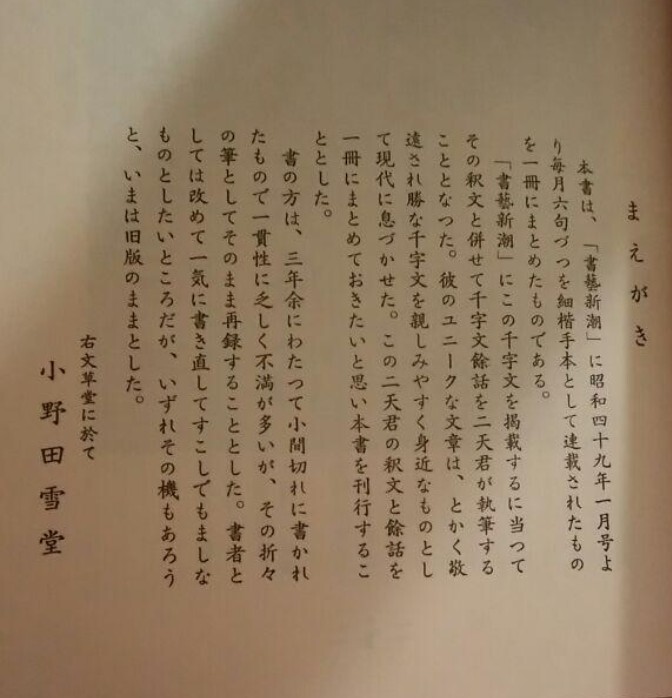 まえがき
本書は、「書藝新潮」に昭和四十九年一月号よ
り毎月六句づつを細楷手本として連載されたもの
を一冊にまとめたものである。
「書藝新潮」にこの千字文を掲載するに当つて
その釈文と併せて千字文餘話を二天君が執筆する
こととなつた。彼のユニークな文章は、とかく敬
遠され勝な千字文を親しみやすく身近なものとし
て現代に息づかせた。この二天君の釈文と餘話を
一冊にまとめておきたいと思い本書を刊行するこ
ととした。
書の方は、三年余にわたつて小間切れに書かれ
たもので一貫性に乏しく不満が多いが、その折々
の筆としてそのまま再録することとした。書者と
しては改めて一気に書き直してすこしでもましな
ものとしたいところだが、いずれその機もあろう
と、いまは旧版のままとした。
右文草堂に於て
小野田雪堂